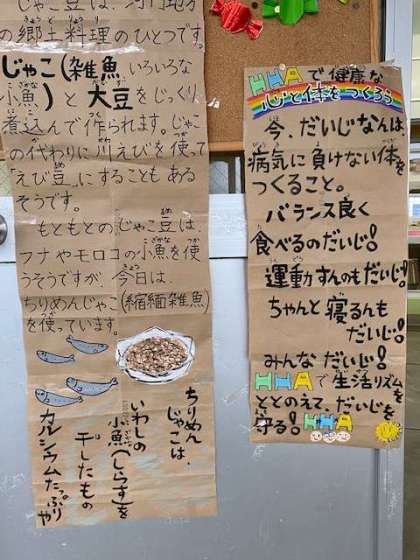 じゃこ豆は、河内地方
の郷土料理のひとつです。
じゃこ(雑魚、いろいろな
小魚)と大豆をじっくり
煮込んで作られます。じゃこ
の代わりに川えびを使って
「えび豆」にすることもある
そうです。
もともとのじゃこ豆は、
フナやモロコの小魚を使
うそうですが、今日は、
ちりめんじゃこ(縮緬雑魚)
を使っています。
ちりめん
じゃこは、
いわしの
小魚(しらす)を
干したもの
カルシウムたっぷりや
HHAで健康な
心と体をつくろう
今、だいじなんは、
病気に負けない体を
つくること。
バランス良く
食べるのだいじ!
運動すんのもだいじ!
ちゃんと寝るんも
だいじ!
みんなだいじ!
HHAで生活リズムを
ととのえて、だいじを
守る! HHA